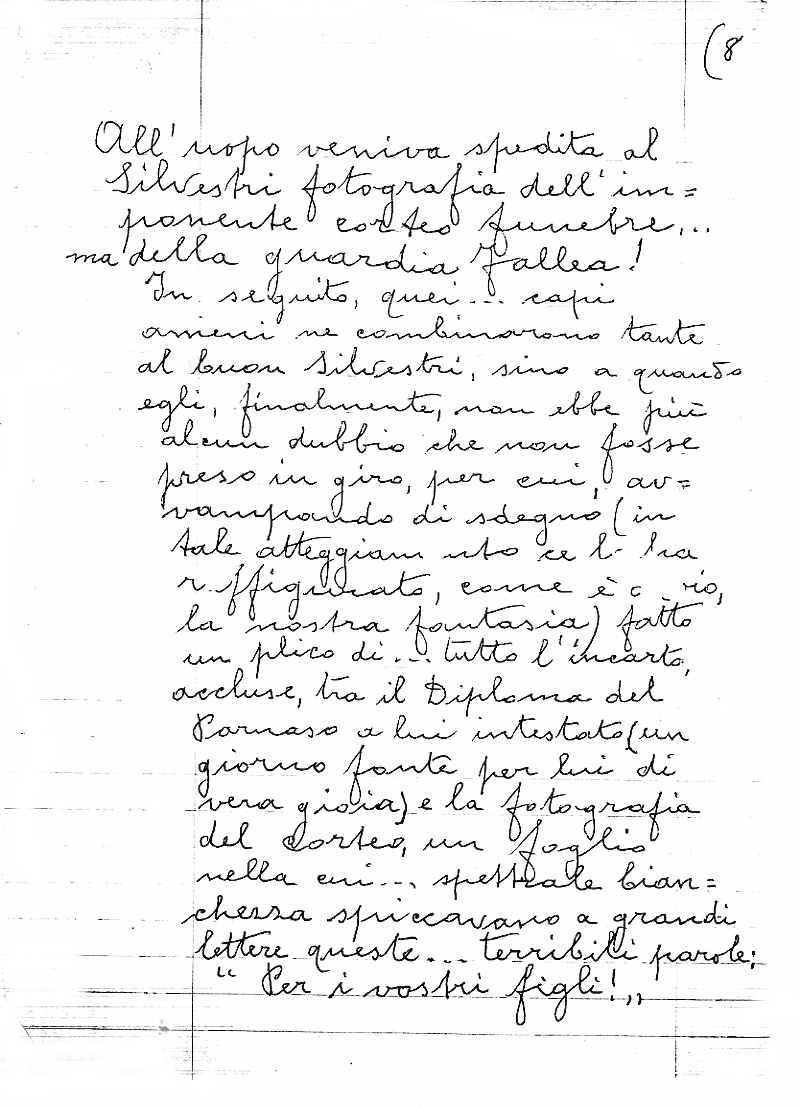 (8
All'uopo veniva spedita al
Silvestri fotografia dell'im=
ponente corteo funebre...
ma della guardia Fallea!
In seguito, quei... capi
ameni ne combinarono tante
al buon Silvestri, sino a quando
egli, finalmente, non ebbe più
alcun dubbio che non fosse
preso in giro, per cui, av=
vampando di sdegno (in
tale atteggiam nto ce l' ha
r ffigurato, come è c rio,
la nostra fantasia) fatto
un plico di... tutto l'incarto,
accluse, tra il Diploma del
Parnaso a lui intestato (un
giorno fonte per lui di
vera gioia) e la fotografia
del corteo, un foglio
nella cui... spettrale bian=
chezza spiccavano a grandi
lettere queste... terribili parole:
“ Per i vostri figli! „